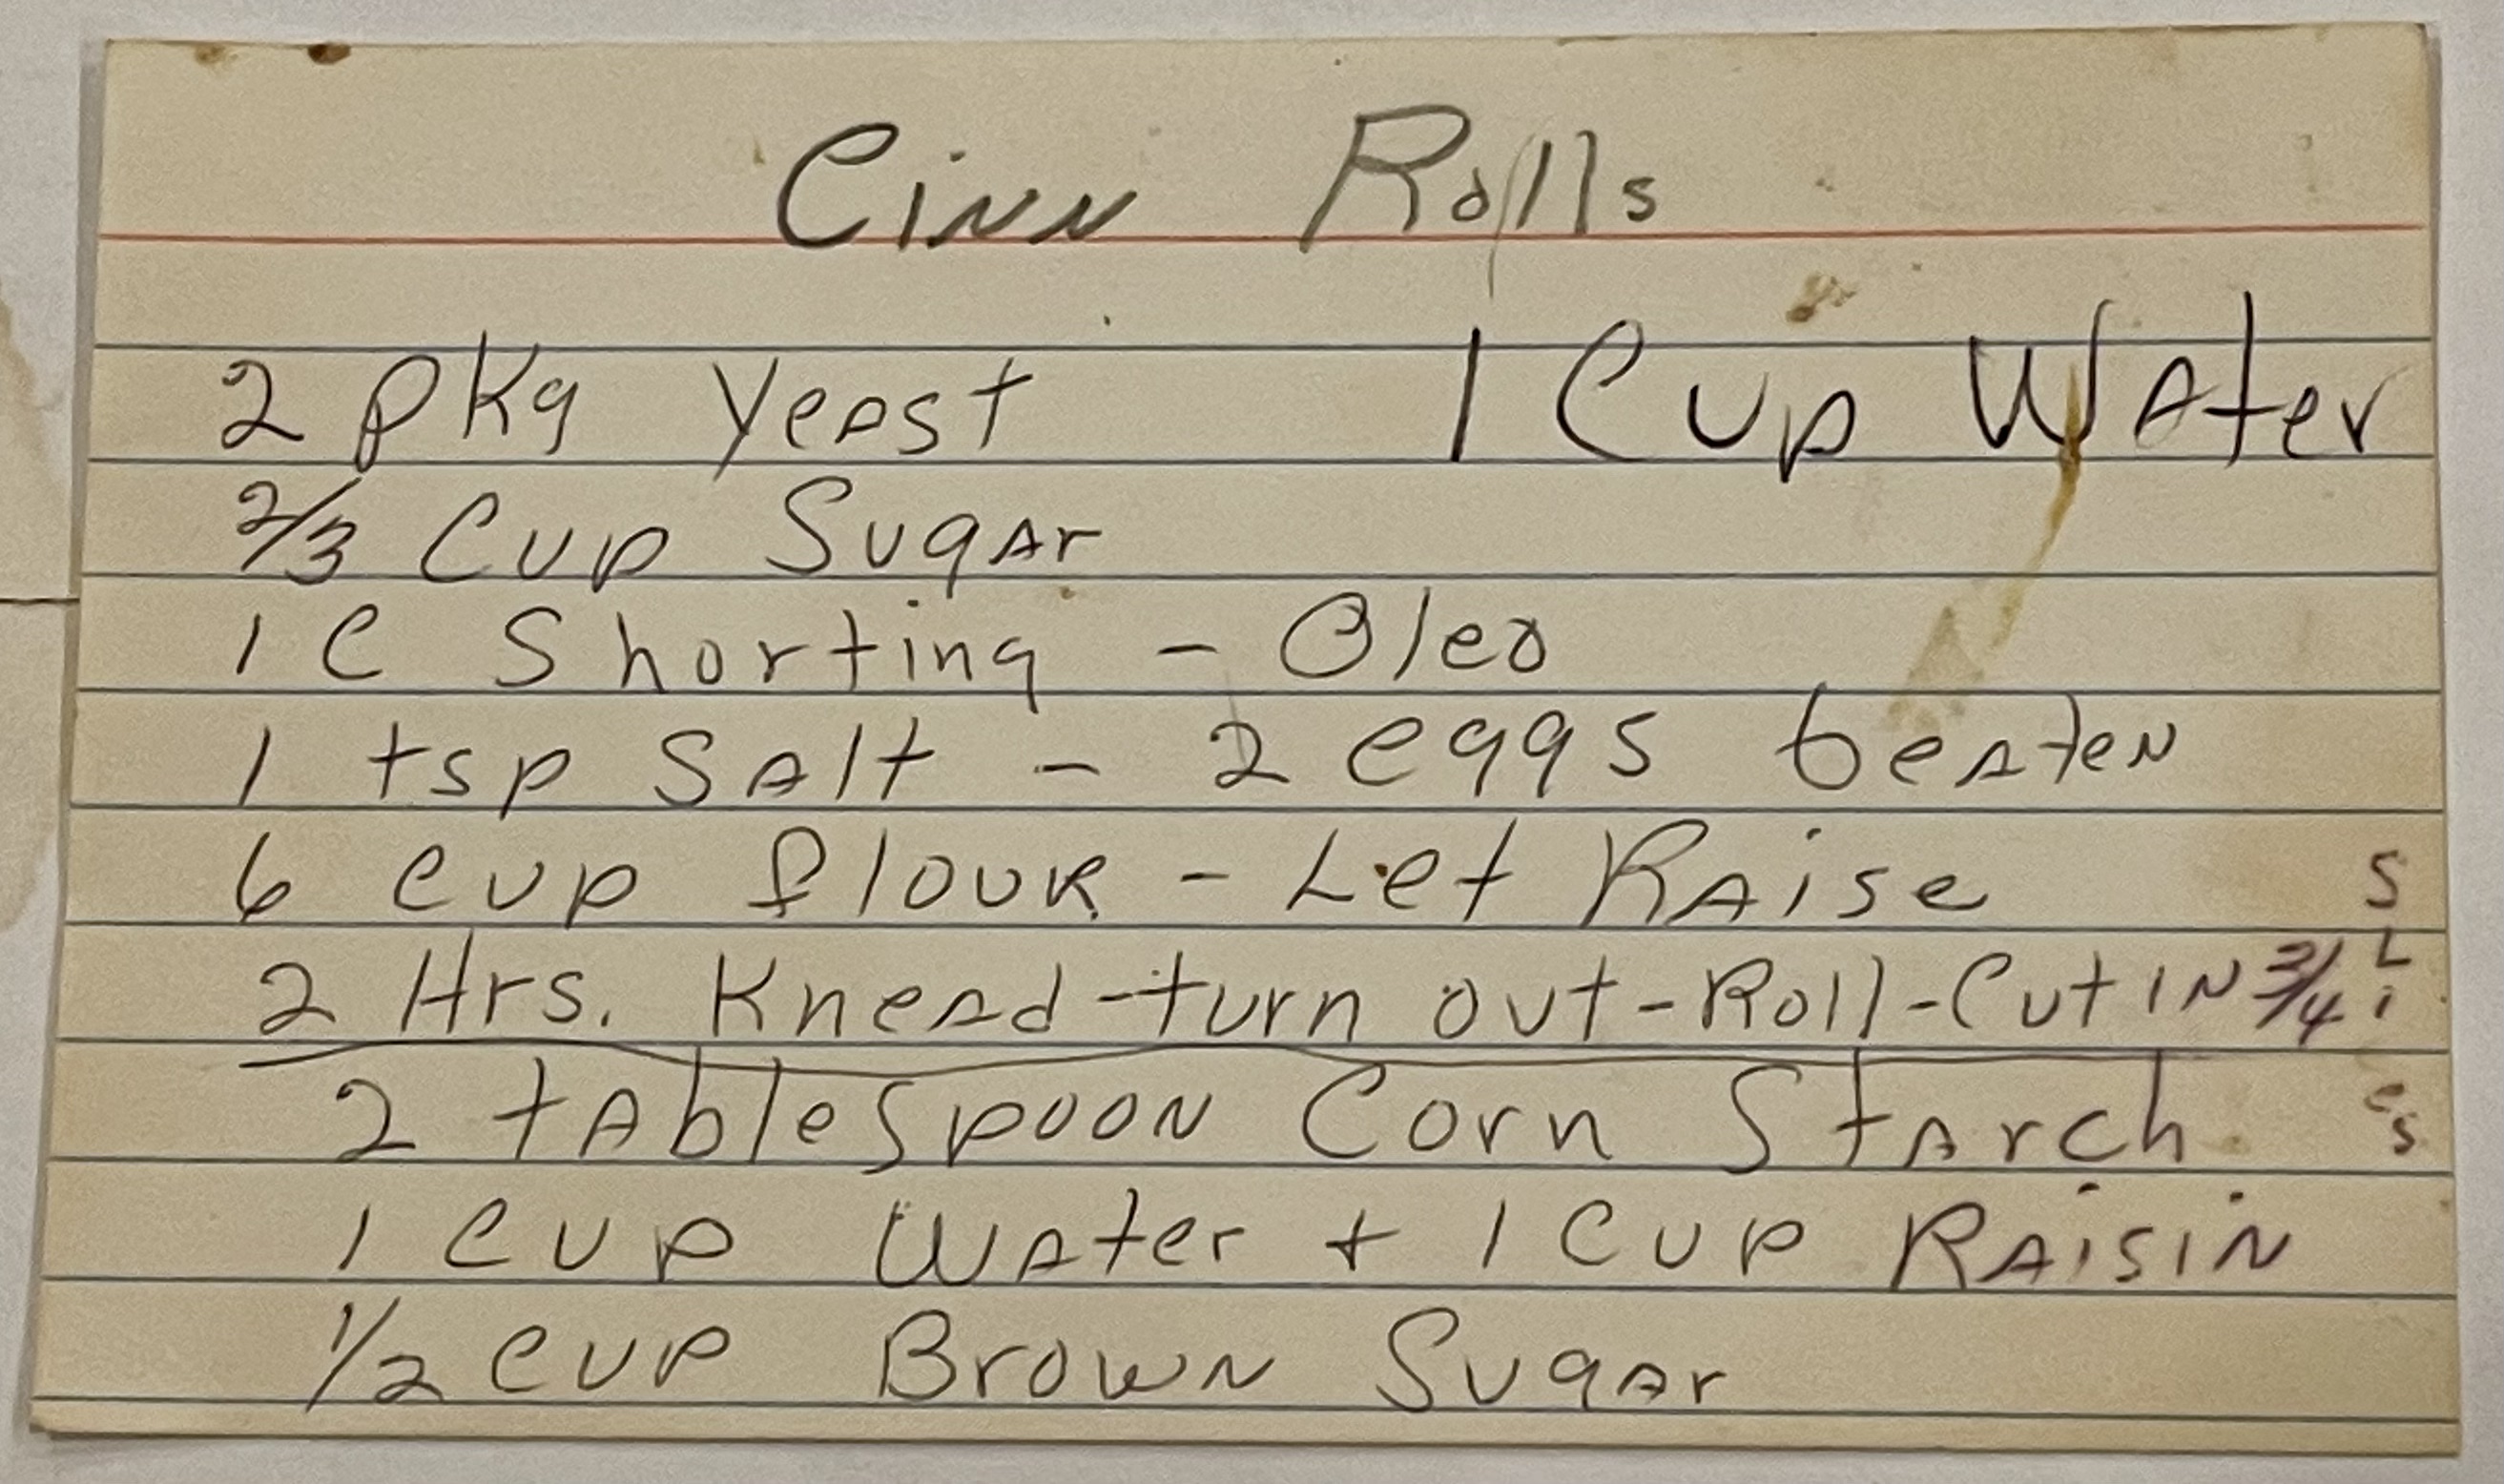 Cinn Rolls
2 pkg yeast 1 Cup Water
2/3 Cup Sugar
1 C Shorting - Oleo
1 tsp Salt - 2 eggs beaten
6 cup flour - Let Raise
2 Hrs. Knead-turn out-Roll-Cut IN 3/4 SLices
2 tablespoon Corn Starch
1 cup water + 1 cup Raisin
1/2 cup Brown Sugar